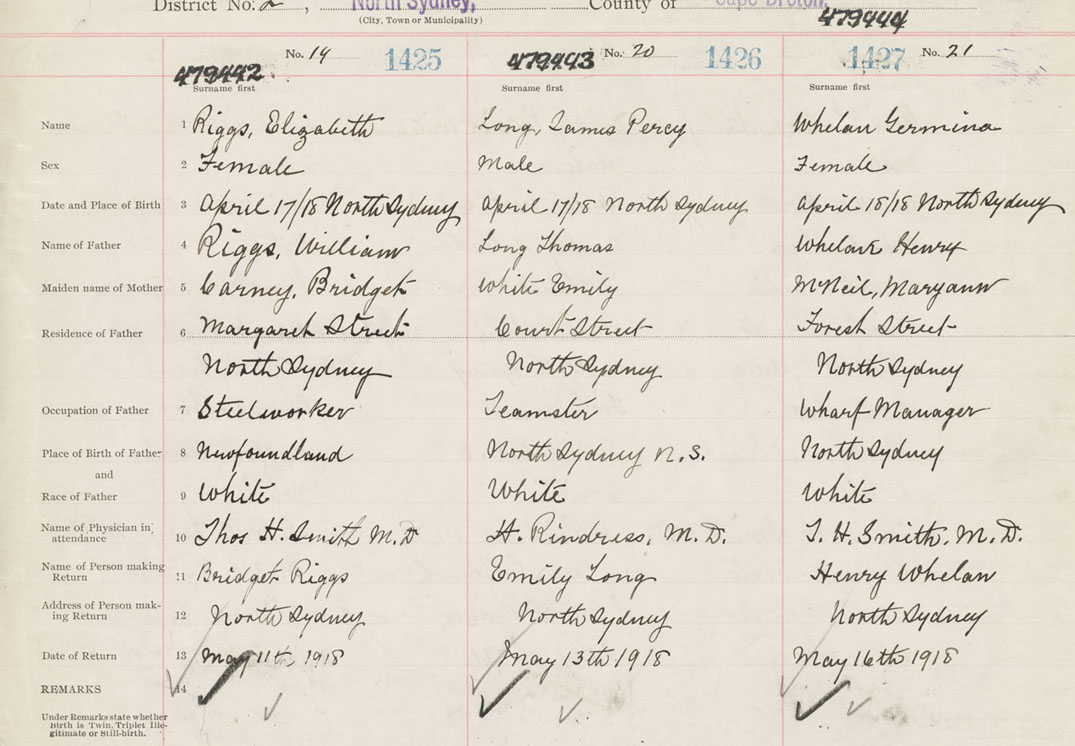 District No. 2, North Sydney, County of Cape Breton,
(City, Town or Municipality)
479444
No. 19 1425 No. 20 1426 1427 No. 21
479442 479443
Surname first Surname first Surname first
Name 1 Riggs, Elizabeth Long, James Percy Whelan Germina
Sex 2 Female Male Female
Date and Place of Birth 3 April 17/18 North Sydney April 17/18 North Sydney April 18/18 North Sydney
Name of Father 4 Riggs, William Long Thomas Whelan Henry
Maiden name of Mother 5 Carney, Bridget White Emily McNeil, Maryann
Residence of Father 6 Margaret Street Court Street Forest Street
North Sydney North Sydney North Sydney
Occupation of Father 7 Steelworker Teamster Wharf Manager
Place of Birth of Father 8 Newfoundland North Sydney N.S. North Sydney
and
Race of Father 9 White White White
Name of Physician in attendance 10 Thos H. Smith M.D H. Rindress, M.D. T. H. Smith. M.D.
Name of Person making Return 11 Bridget Riggs Emily Long Henry Whelan
Address of Person making Return 12 North Sydney North Sydney North Sydney
Date of Return 13 May 11th 1918 May 13th 1918 May 16th 1918
REMARKS 14
Under Remarks state whether
Birth is Twin, Triplet Ille-
gitimate or Still-birth.